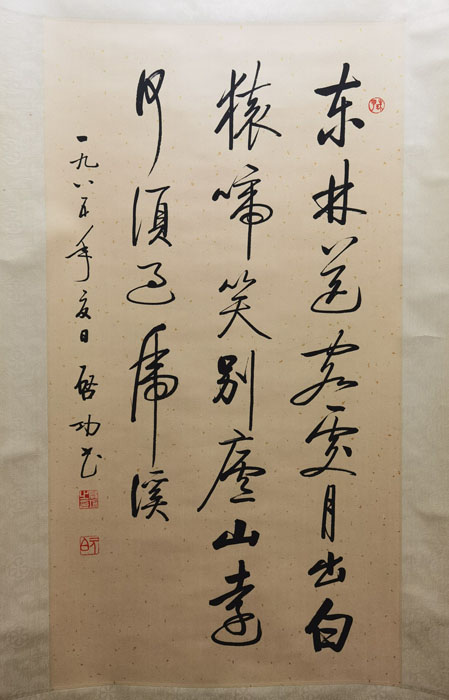 东林送客處月出白
猿啼笑别廬山遠
何須過虎溪
一九八五年夏日 啓功书